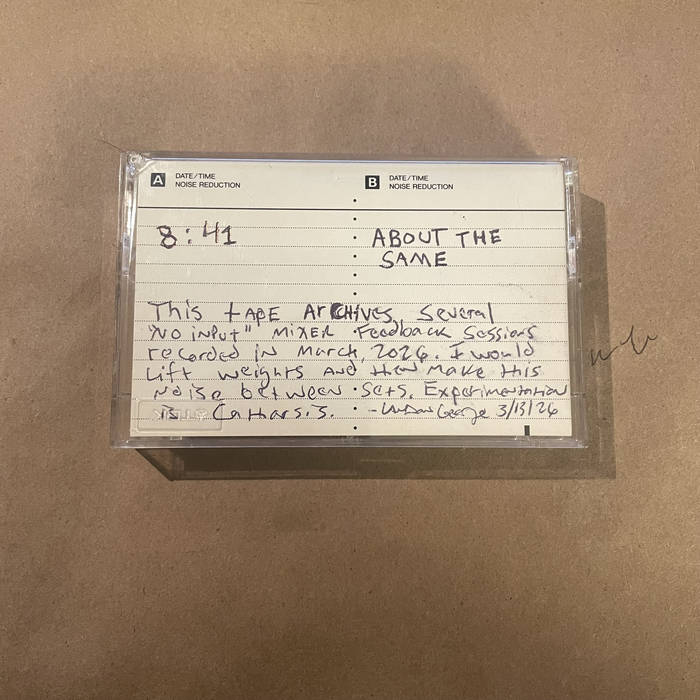 A DATE/TIME
NOISE REDUCTION
B DATE/TIME
NOISE REDUCTION
8:41
ABOUT THE
SAME
This tAPE ArCHIVES several
"No iNPUT" MiXER Feedback Sessions
recorded in March, 2026. I would
Lift weights AND then MAKE this
Noise between sets. Experimentation
is Catharsis. - George 3/13/26